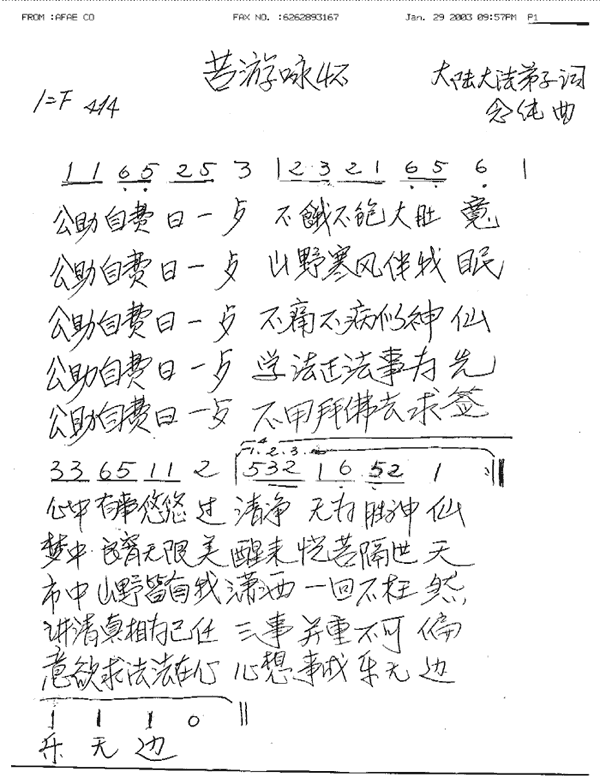 FROM :AFAE CO FAX NO. :6262893167 Jan. 29 2003 09:57PM P1
苦游咏怀
大陆大法弟子词
1=F 4/4
念纯 曲
1 1 6 5 2 5 3 | 2 3 2 1 6 5 6 |
公助自费日一步 不饿不饱大肚
公助自费日一步 山野寒风伴我眠
公助自费日一步 不痛不病似神仙
公助自费日一步 学法正法事为先
公助自费日一步 不用拜佛去求签
1.2.3. 4
3 3 6 5 1 1 2 5 3 2 1 6 5 2 1 :||
心中有事悠悠过 清净无为胜神仙
梦中 无限美 醒来恍若隔世天
市中山野皆有我 潇洒一回不枉然
讲清真相为己任 三事并重不可偏
意欲求法法在心 心想事成乐无边
1 1 1 0 ||
乐无边